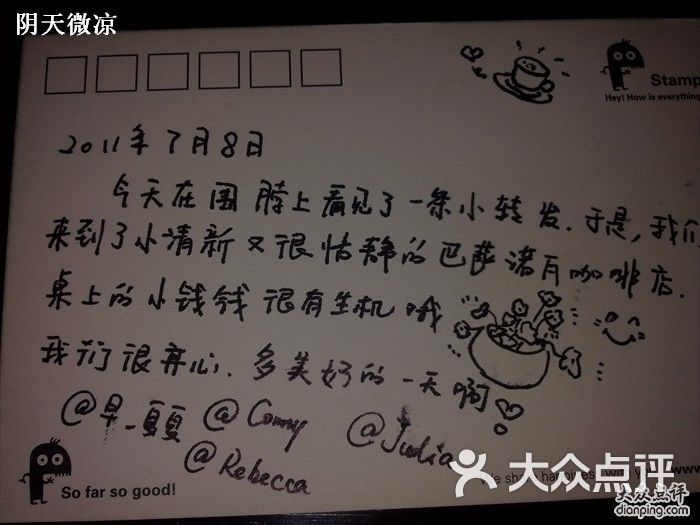 阴天微凉
Stamp
Hey! How is everything
2011年7月8日
今天在围脖上看见了一条小转发.于是,我们
来到了小清新又很恬静的巴萨诸月咖啡店.
桌上的小钱钱很有生机哦
我们很开心.多美好的一天啊
@早_夏夏 @Conny @Julia
@Rebecca
So far so good!
We sh
大众点评
大众点评
dianping.com